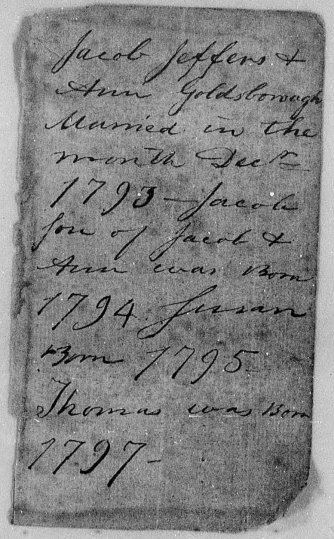 Jacob Jeffers &
Ann Goldsborough
Married in the
month Decr
1793 – Jacob
son of Jacob &
Ann was Born
1794 Susan
Born 1795
Thomas was Born
1797 –